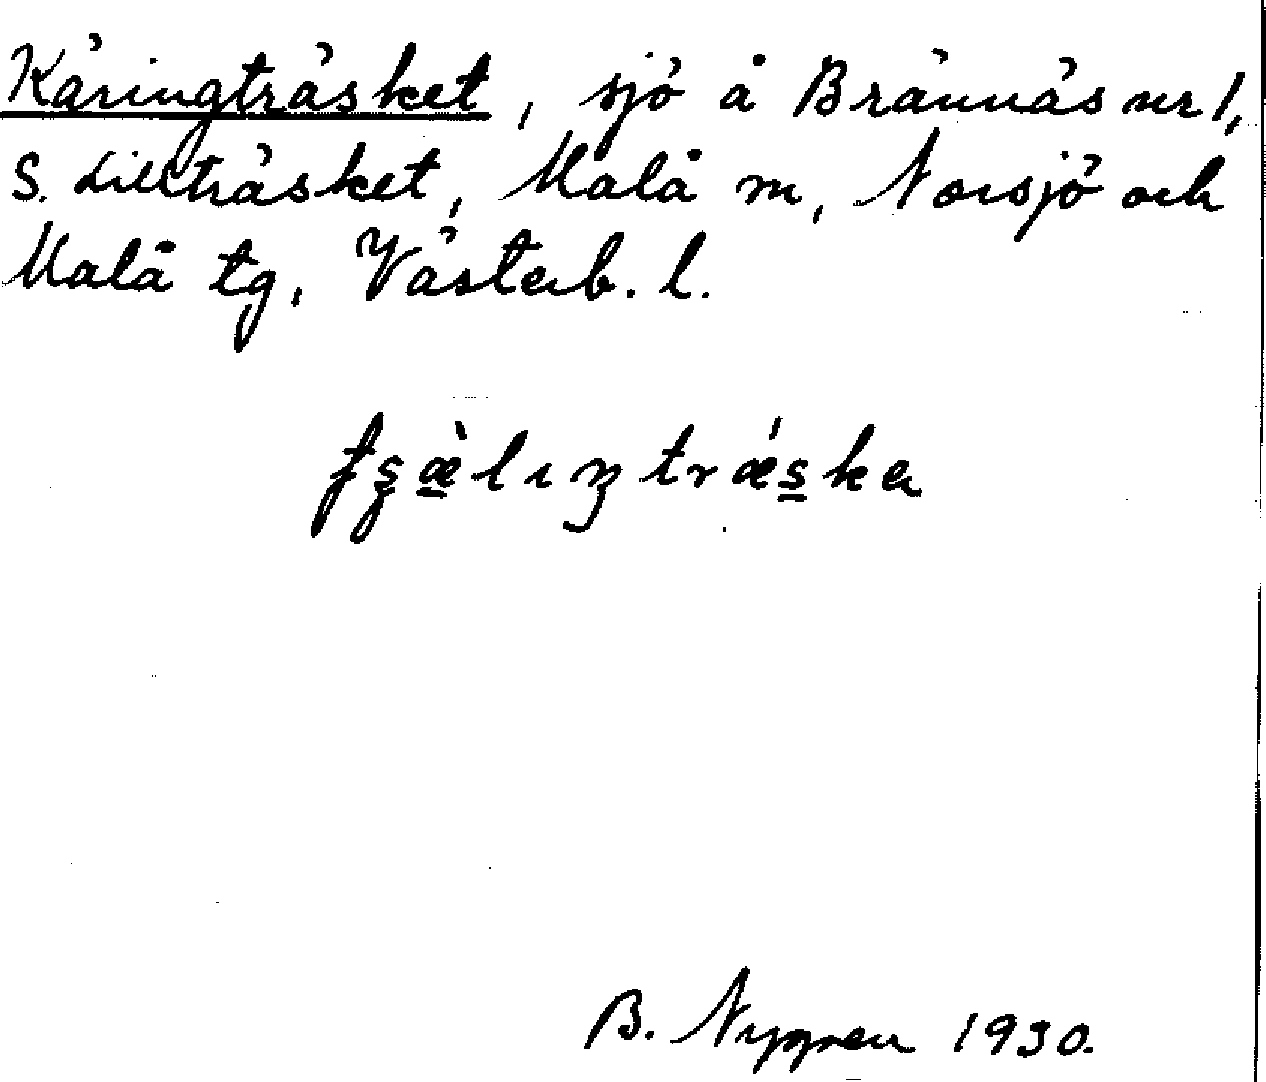 Käringträsket, sjö å Brännäs nr 1,
S. Lillträsket, Malå m, Norsjö och
Malå tg, Västerb. l.
B. Nygren 1930.